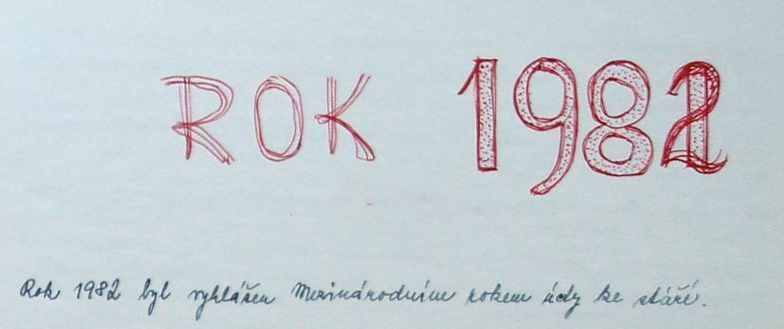 ROK 1982
Rok 1982 byl vyhlášen Mezinárodním rokem úcty ke stáří.